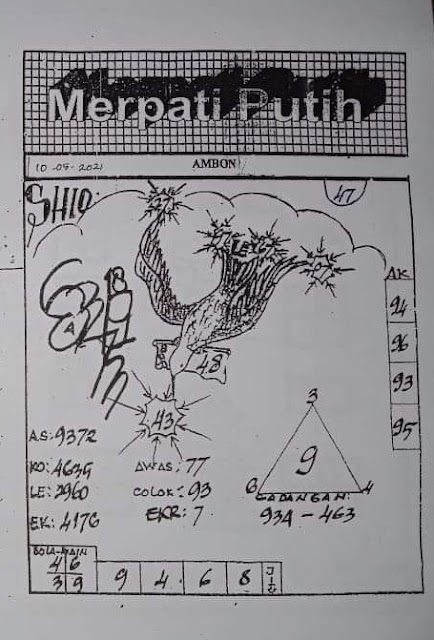 Merpati Putih
10-09-2021
AMBON
SHIO:
47
27
48
43
AK
94
96
93
95
A.S: 9372
KO: 4635
LE: 2960
EK: 4176
AWAS: 77
COLOK: 93
EKR: 7
3
9
6
4
CADANGAN:
934 - 463
BOLA-AIN
4 6
3 9
9 4 6 8